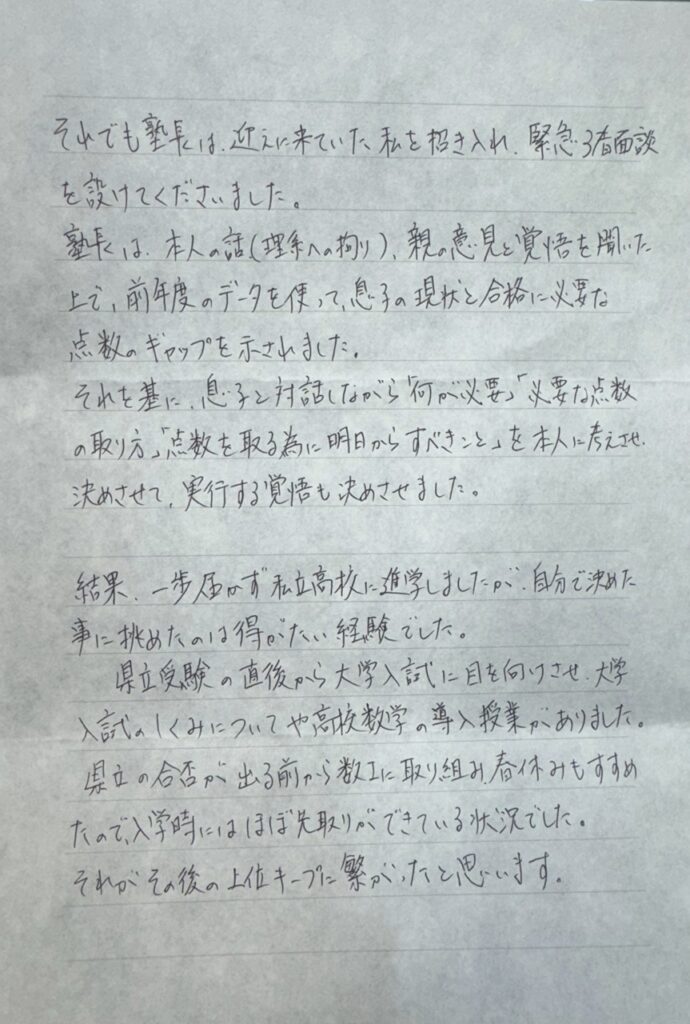 それでも塾長は、迎えに来ていた私を招き入れ、緊急3者面談
を設けてくださいました。
塾長は、本人の話(理系への拘り)、親の意見と覚悟を聞いた
上で、前年度のデータを使って、息子の現状と合格に必要な
点数のギャップを示されました。
それを基に、息子と対話しながら「何が必要」「必要な点数
の取り方」「点数を取る為に明日からすべきこと」を本人に考えさせ、
決めさせて、実行する覚悟も決めさせました。
結果、一歩届かず私立高校に進学しましたが、自分で決めた
事に挑めたのは得がたい経験でした。
県立受験の直後から大学入試に目を向けさせ、大学
入試のしくみについてや高校数学の導入授業がありました。
県立の合否が出る前から数Iに取り組み、春休みもすすめ
たので、入学時にはほぼ先取りができている状況でした。
それがその後の上位キープに繋がったと思います。